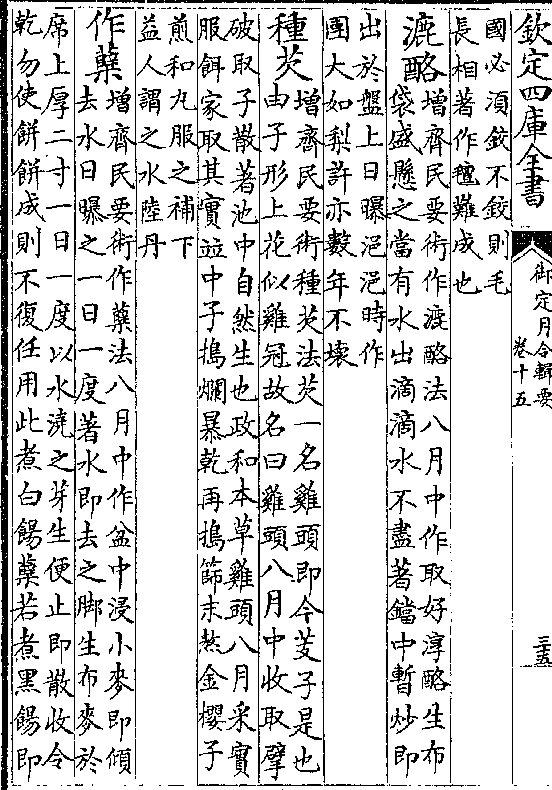 欽定四庫全書
御定月令輯要
卷十五
三五
國必須鉸不鉸則毛
長相著作氊難成也
漉酪增齊民要術作漉酪法八月中作取好淳酪生布
袋盛懸之當有水出滴滴水不盡著鐺中暫炒即
出於盤上日曝浥浥時作
團大如梨許亦數年不壊
種芡增齊民要術種芡法芡一名雞頭即今芡子是也
由子形上花似雞冠故名曰雞頭八月中收取擘
破取子散著池中自然生也政和本草雞頭八月采實
服餌家取其實並中子搗爛暴乾再搗篩末熬金櫻子
煎和丸服之補下
益人謂之水陸丹
作蘗增齊民要術作蘗法八月中作盆中浸小麥即傾
去水日曝之一日一度著水即去之脚生布麥於
席上厚二寸一日一度以水澆之芽生便止即散收令
乾勿使餅餅成則不復任用此煮白餳蘗若煮黑餳即